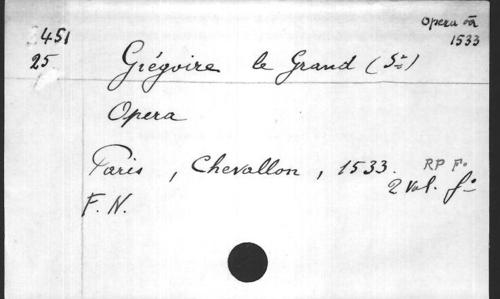 Opera oa
1533
451
25
Grégoire le Grand (St)
Opera
Paris, Chevallon, 1533. RP Fo
2 vol. fo
F. N.